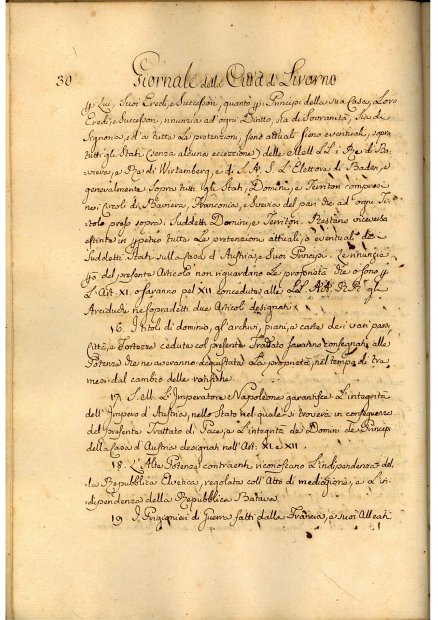 30 Giornale della Città di Livorno
Lui, Suoi Eredi, e Successori, quanto Principi della sua Casa, Loro
Eredi, e Successori, rinunzia ad ogni Diritto, sia di Sovranità, sia di
Signoria, ed a tutte Le pretenzioni, siano attuali siano eventuali, sopra
tutti gli Stati (senza alcuna eccezzione) delle MM. LL. i Re di Ba-
viera, e Re di Wirtemberg, e di S. A. S. L'Elettore di Baden, e
generalmente Sopra tutti gli Stati, Domini, e Territori compresi
nei Circoli di Baviera, Franconia, e Svevia del pari che ad ogni Ti-
tolo preso sopra i Suddetti Domini, e Territori. Restano viceversa
estinte in tutte Le pretenzioni attuali, o eventuali dei
Suddetti Stati sulla Casa d'Austria, e Suoi Principi. Le rinunzie
del presente Articolo non riguardano Le proprietà che sono
L'Art. XI o saranno pel XII concedute alle LL. AA. RR. gli
Arciduchi ne sopradetti due Articoli designati.
16. I titoli di dominio, gl'archivi, piani, e carte dei vari paesi,
Città, e Fortezze cedute col presente Trattato saranno consegnati alle
Potenze che ne avranno acquistata La proprietà, nel tempo di tre
mesi dal cambio delle ratifiche.
17. S. M. L'Imperatore Napoleone garantisce L'integrità
dell'Impero d'Austria, nello Stato nel quale si troverà in conseguenza
del presente Trattato di Pace, e L'integrità de Domini de Principi
della Casa d'Austria designati nell'Art. XI e XII.
18. L'Alte Potenze contraenti riconoscano L'indipendenza del-
la Repubblica Elvetica, regolata coll'Atto di mediazione, e L'in-
dipendenza della Repubblica Batava.
19. I Prigionieri di Guerra fatti dalla Francia, e suoi Alleati